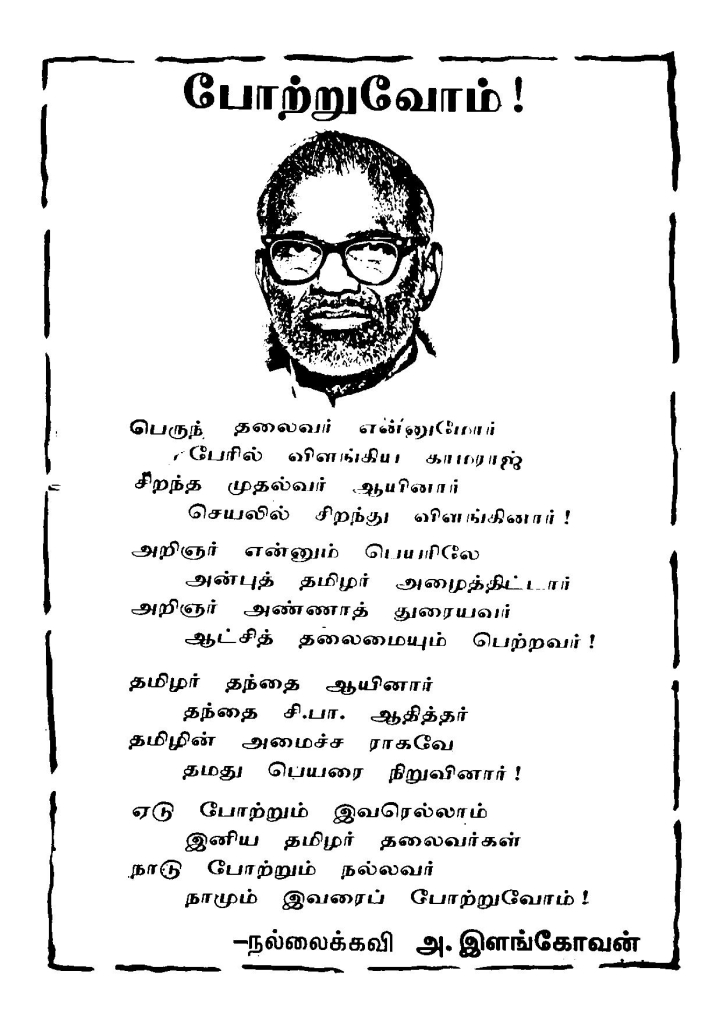 போற்றுவோம் !
பெருந் தலைவர் என்னுமோர்
பேரில் விளங்கிய காமராஜ்
சிறந்த முதல்வர் ஆயினார்
செயலில் சிறந்து விளங்கினார் !
அறிஞர் என்னும் பெயரிலே
அன்புத் தமிழர் அழைத்திட்டார்
அறிஞர் அண்ணாத் துரையவர்
ஆட்சித் தலைமையும் பெற்றவர் !
தமிழர் தந்தை ஆயினார்
தந்தை சி.பா. ஆதித்தர்
தமிழின் அமைச்ச ராகவே
தமது பெயரை நிறுவினார் !
ஏடு போற்றும் இவரெல்லாம்
இனிய தமிழர் தலைவர்கள்
நாடு போற்றும் நல்லவர்
நாமும் இவரைப் போற்றுவோம் !
–நல்லைக்கவி அ. இளங்கோவன்